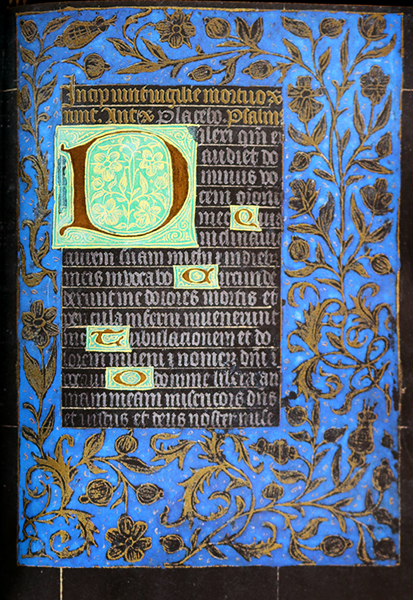 Incipiunt vigilie mortuoꝝ
Placebo. Psalm
Dilexi qm̄ ex
audiet do
minus vo
cem
mee Q
inclinauit
aurem suam michi
meis inuocabo Circumde
derunt me dolores mortis et
pericula inferni inuenerunt
me Tribulacionem et do
lorem inueni et nomen dn̄i
uocaui O domine libera an
mam meam misericors dn̄s
et iustus et deus noster mise